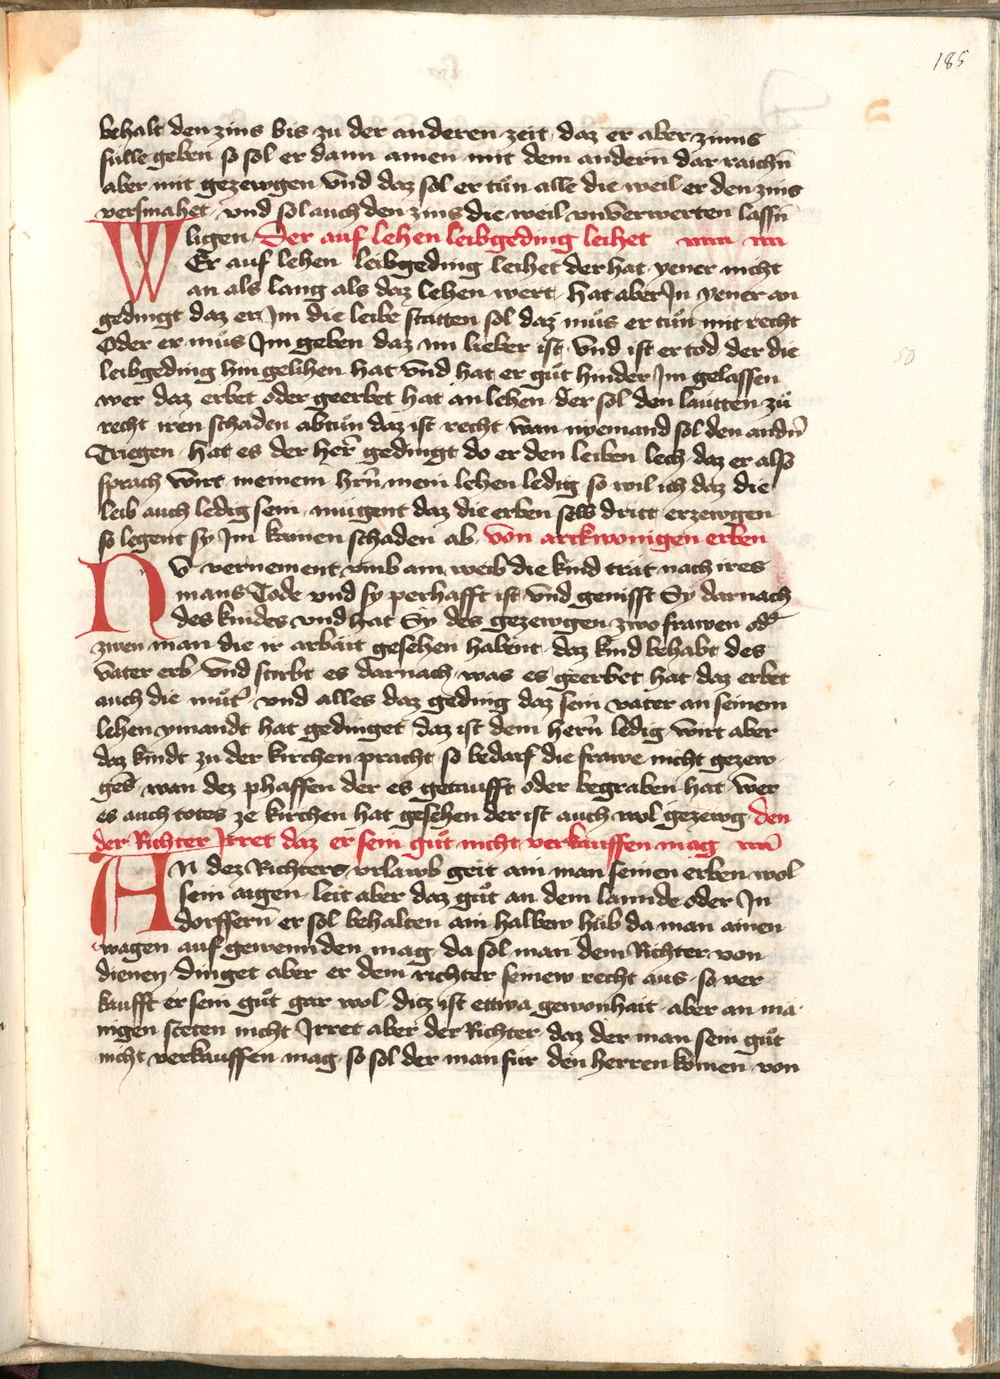 185
behalt den zins bis zu der anderen zeit daz er aber zinns
sulle geben so sol er dann ainen mit dem andern dar raichn̄
aber mit gezewgen vnd daz sol er tůn alle die weil er den zins
versmahet · vnd sol auch den zins die weil vnverwerten lassn̄
ligen · Der auf lehen leibgeding leihet
WEr auf lehen leibgeding leihet der hat yener nicht
an als lang als daz lehen wert · hat aber In yener an
gedingt daz er Im die leibe statten sol daz můs er tůn mit recht
Oder er můs Im geben daz im lieber ist · Vnd ist er tod der die
leibgeding hin gelihen hat vnd hat er gůt hinder Im gelassen
wer daz erbet oder geerbet hat an lehen · der sol den lautten zů
recht iren schaden abtůn daz ist recht wan nyemand sol den andn̄
Triegen · hat es der her̄ gedingt do er den leiben lech · daz er also
sprach wirt meinem hrn̄ mein lehen ledig · so wil ich daz die
leib auch ledig sein · mügent daz die erben selb dritt erzewgen
so legent sy Im kainen schaden ab · von arckwonigen erben
NV vernement vmb ain weib die kind trat nach ires
mans Tode vnd sy perhafft ist · vnd genisst Sy darnach
des kindes vnd hat Sy des gezewgen zwo frawen od̄
zwen man die ir arbait gesehen habent · daz kind behabt des
vater erb · vnd stirbt es darnach was es geerbet hat daz erbet
auch die můt̄ · vnd alles daz geding daz sein vater an seinem
lehen ymandt hat gedinget daz ist dem hern̄ ledig · wirt aber
daz kindt zu der kirchen pracht · so bedarf die frawe nicht gezew
ges · wan dez phaffen der es getaufft oder begraben hat wer
es auch totes ze kirchen hat gesehen der ist auch wol gezewg · den
der Richter Irret daz er sein gůt nicht verkauffen mag
AN dez Richters vrlawb geit ain man seinen erben wol
sein aigen · leit aber daz gůt an dem lannde oder In
dorffern̄ er sol behalten ain halbew hůb da man ainen
wagen auf gewennden mag · da sol man dem Richter von
dienen · dinget aber er dem richter seinew recht aus · so ver
kaufft er sein gůt gar wol · ditz ist ettwa gewonhait · aber an ma
nigen steten nicht · Irret aber der Richter · daz der man sein gůt
nicht verkauffen mag · so sol der man für den herren komen · von
50